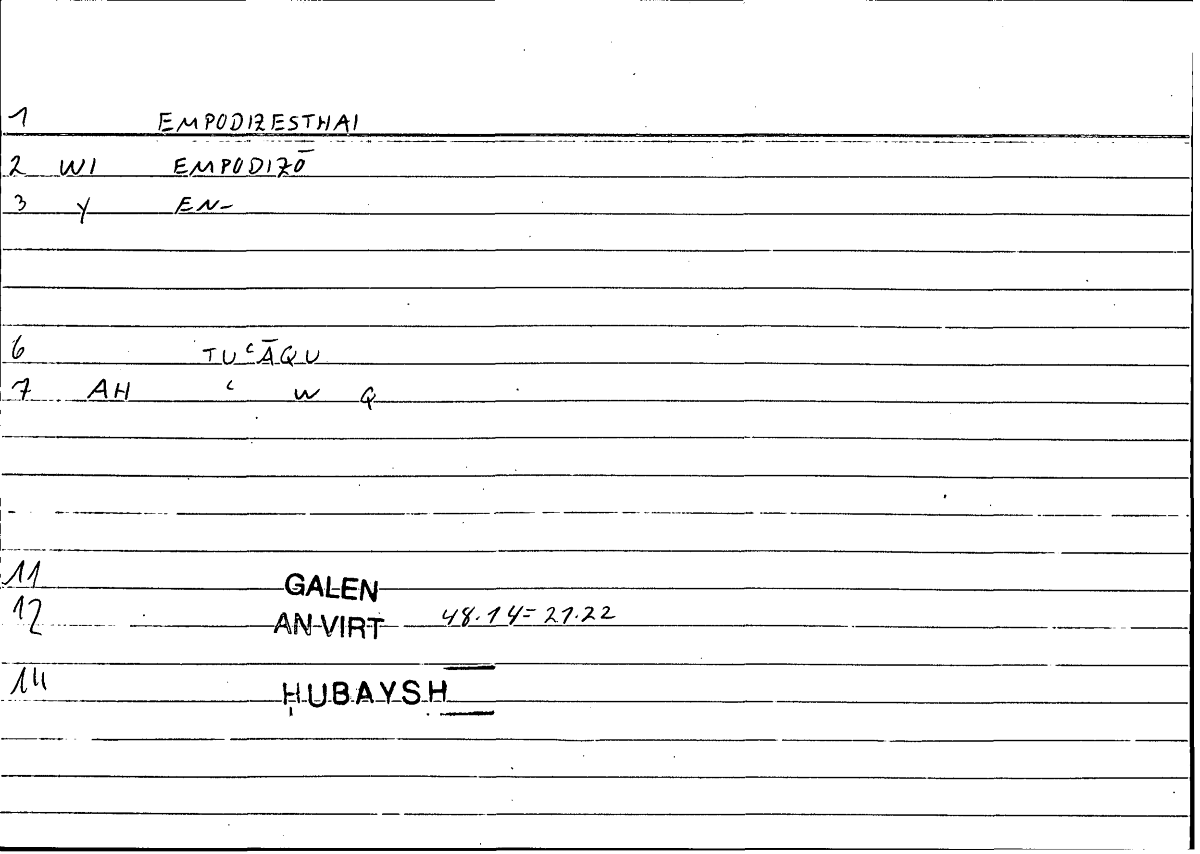 1 EMPODIZESTHAI
2 WI EMPODIZŌ
3 Y EN-
6 TUʿĀQU
7 AH ʿ W Q
11 GALEN
12 AN-VIRT 48.14=21.22
14 ḤUBAYSH